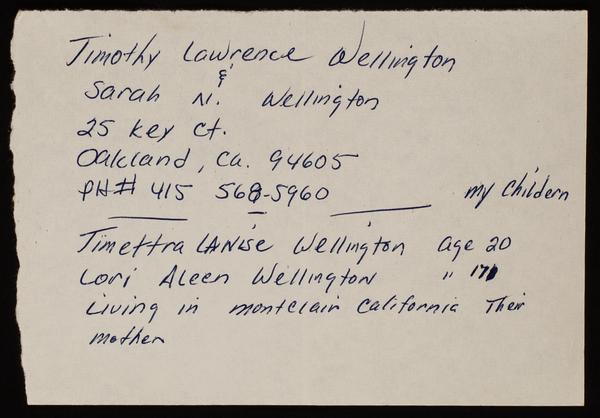 Timothy Lawrence Wellington
&
Sarah N. Wellington
25 Key Ct.
Oakland, Ca. 94605
PH# 415 568-5960 my Childern
Timettra LANise Wellington age 20
Lori Aleen Wellington " 17
Living in montclair California Their
mother